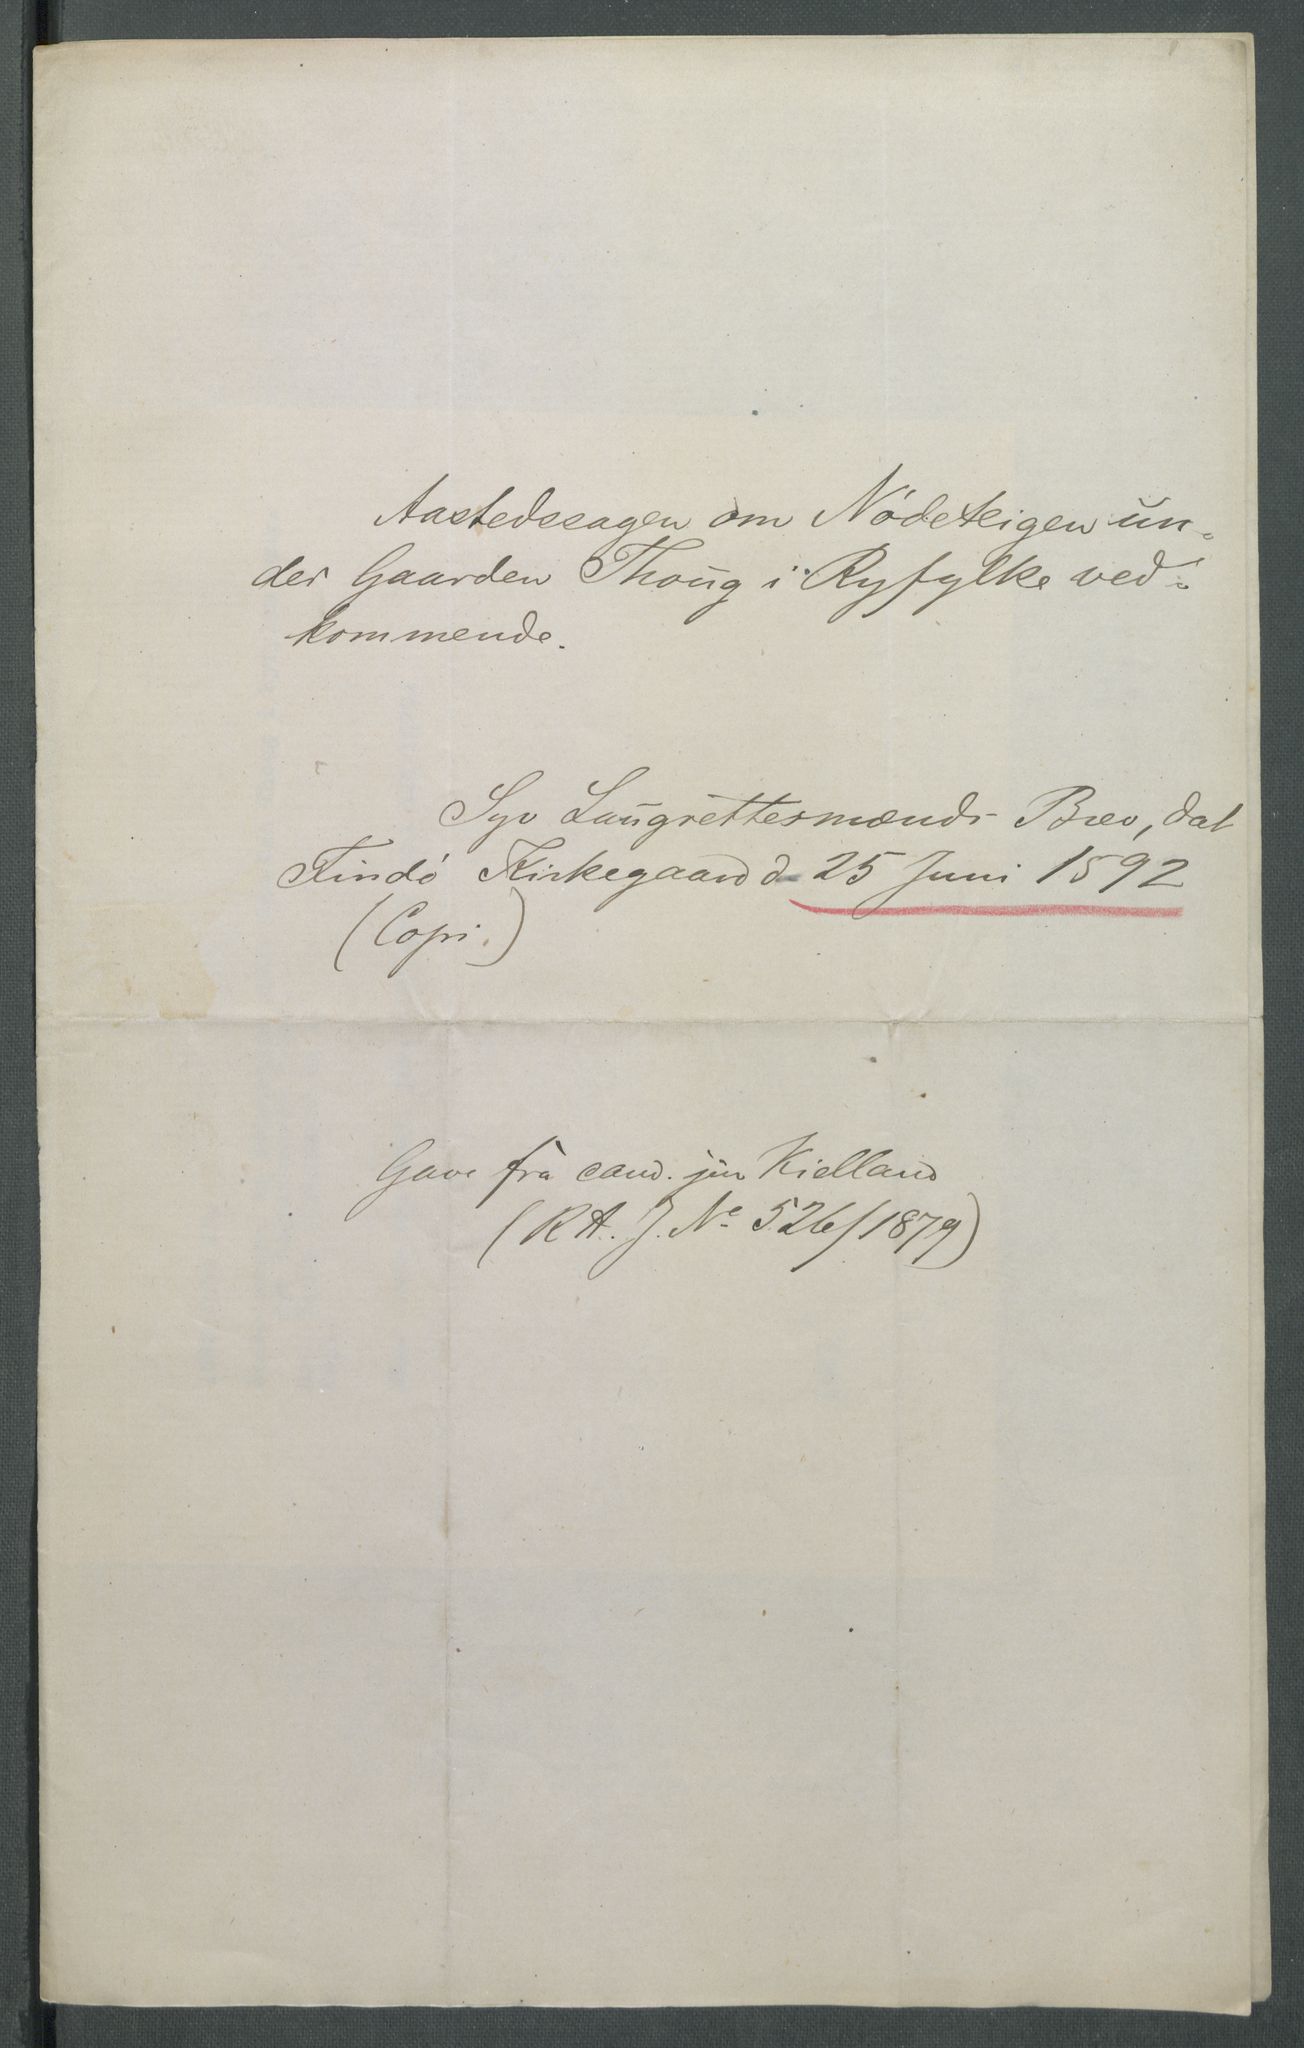 Aastedssagen om Nødeteigen un-
der Gaarden Thoug i Ryfylke ved-
kommende.
Syv Laugrettesmænds Brev, dat
Findø Kirkegaard d 25 Juni 1592
(Copi.)
Gave fra cand. jur Kielland
(R A. J. No 526/1879)